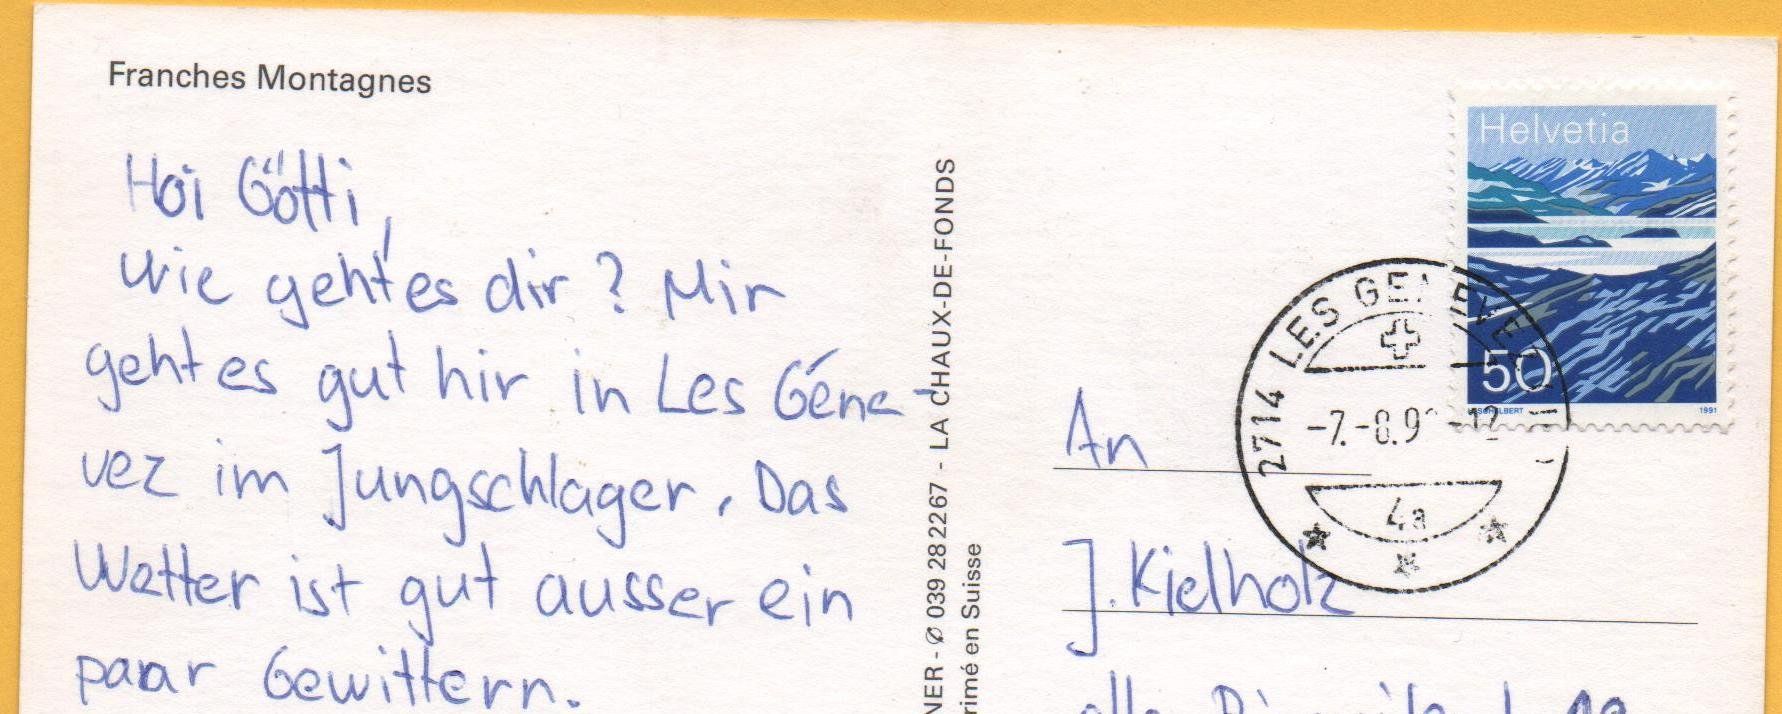 Franches Montagnes
Hoi Götti,
wie geht es dir? Mir
geht es gut hir in Les Géne-
vez im Jungschlager. Das
Wetter ist gut ausser ein
paar Gewittern.
NER - Ø 039 28 22 67 - LA CHAUX-DE-FONDS
rimé en Suisse
Helvetia
50
1991
2714 LES GENEVEZ
-7.-8.9 -12
4a
An
J. Kielholz